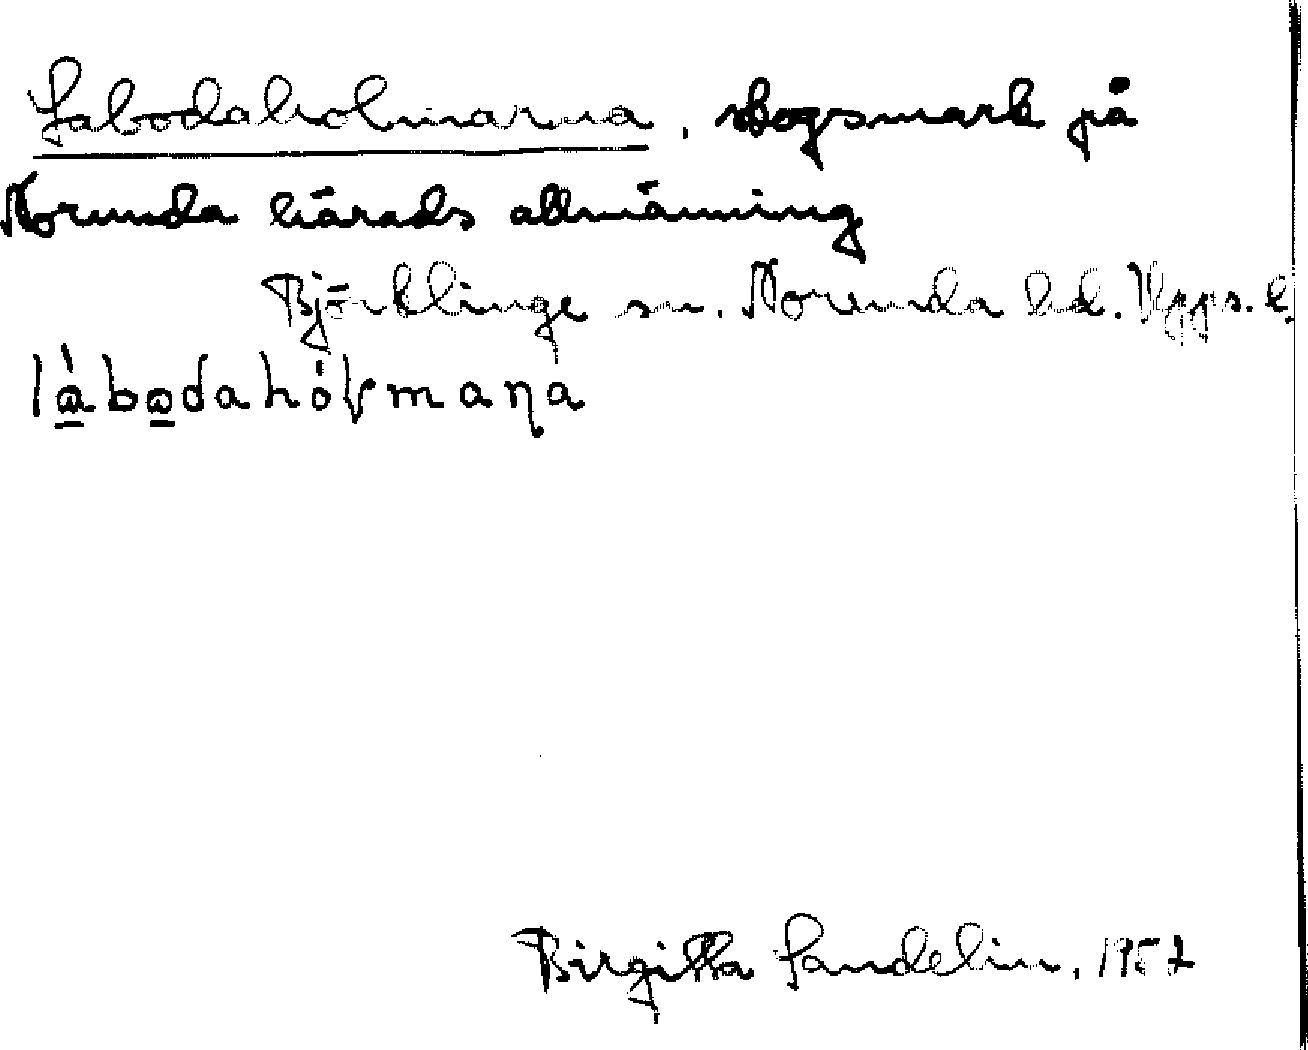 Labodaholmarna, skogsmark på
Norunda härads allmänning
Björklinge sn. Norunda hd. Upps. l.
Birgitta Sandelin, 1957